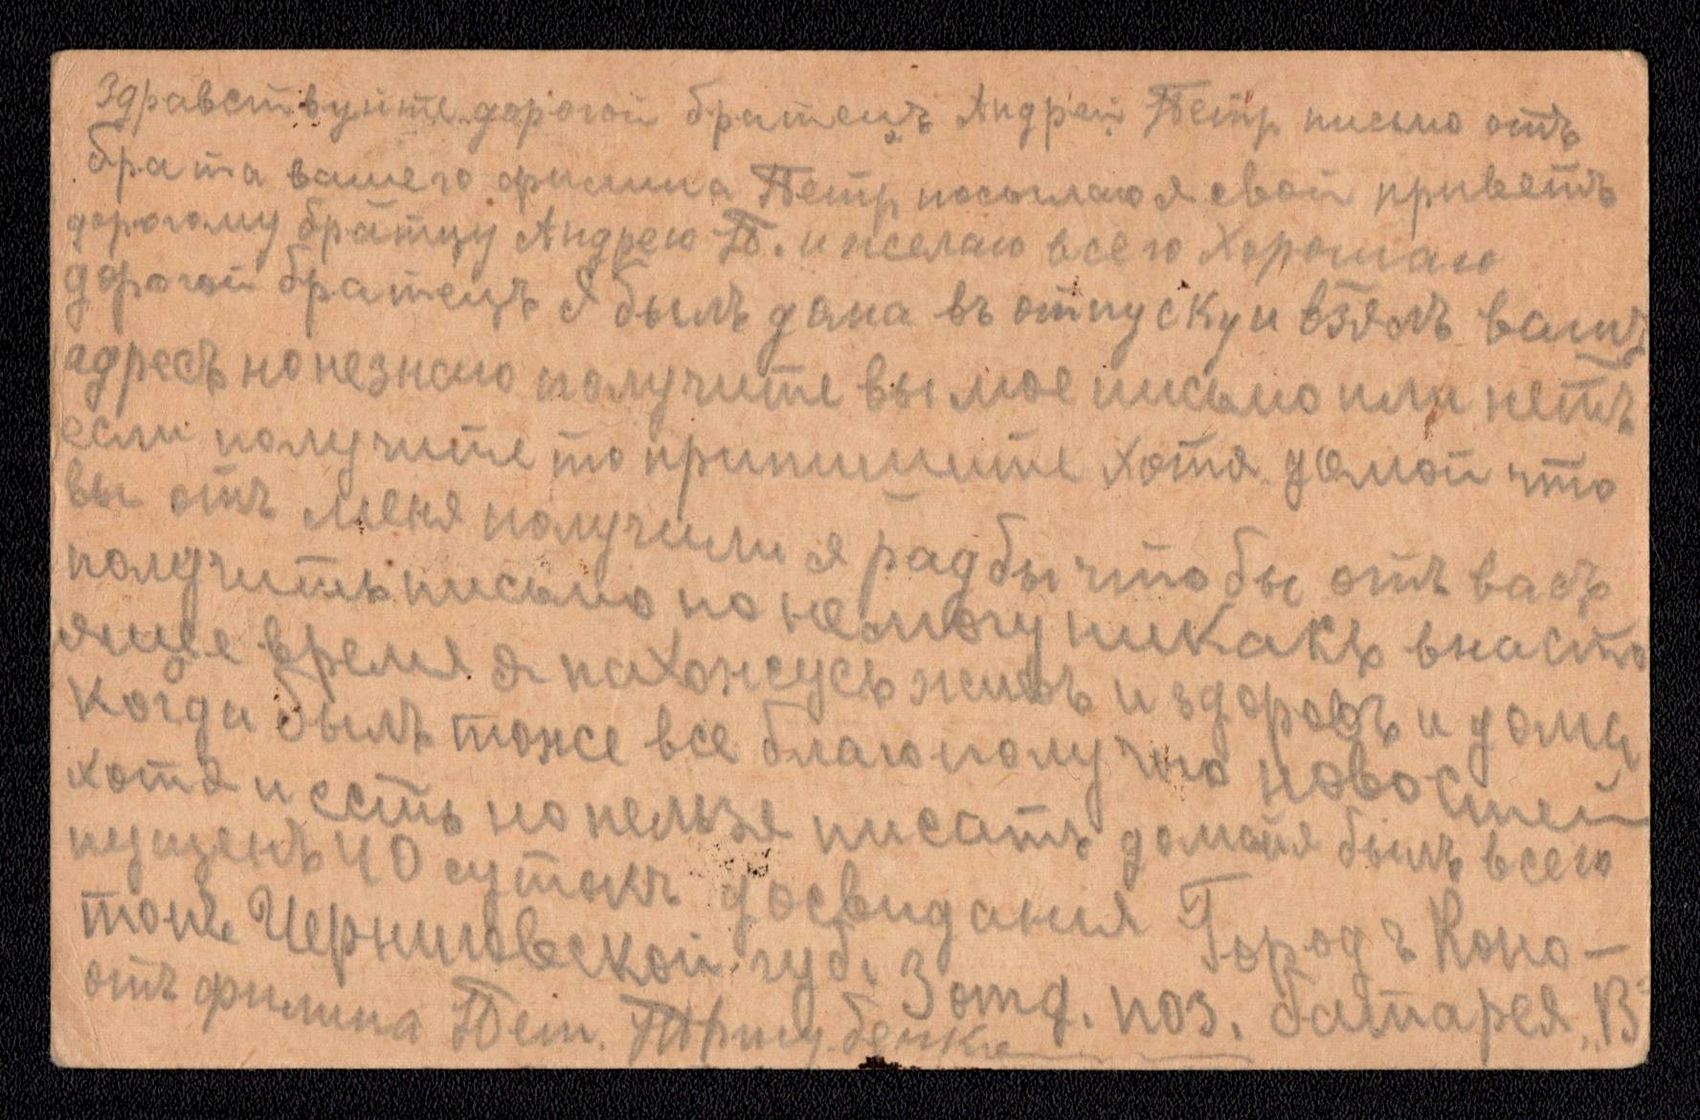 Здравствуйте дорогой братецъ Андрей Петр письмо отъ
брата вашего филипа Петр посылаю я свой приветъ
дорогому братцу Андрею П. и желаю всего Хорошаю
дорогой братецъ я былъ дома въ отпуску и взялъ вашъ
адресъ но незнаю получите вы мое письмо или нетъ
если получите то припишите хотя домой что
вы отъ меня получили я рад бы что бы отъ васъ
получить письмо но немогу никакъ внасто
ящее время я нахожусь живъ и здоровъ и дома
когда былъ тоже все благополучно новостей
хотя и есть но нельзя писать домой я былъ всего
пущенъ 40 сутокъ досвидания Городъ Коно-
топъ Черниговской губ. 3 отд. поз. батарея „В"
отъ филипа Пет. Тригубенка